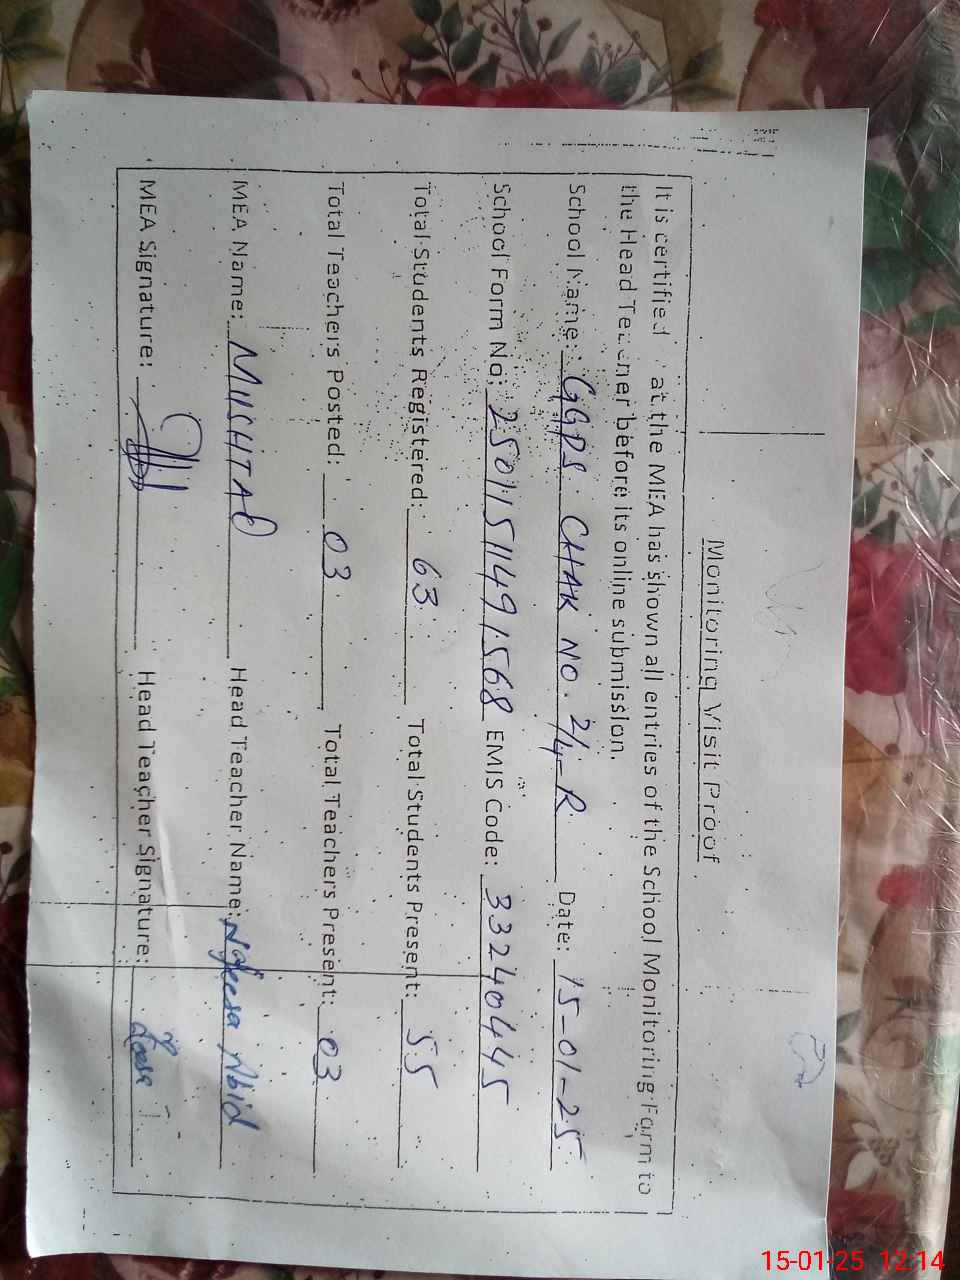 Monitoring Visit Proof
It is certified at the MEA has shown all entries of the School Monitoring Form to
the Head Teacher before its online submission.
School Name: GGPS CHAK NO. 2/4-R Date: 15-01-25
School Form No: 25011511491568 EMIS Code: 33240445
Total Students Registered: 63 Total Students Present: 55
Total Teachers Posted: 03 Total Teachers Present: 03
MEA Name: MUSCHTAQ Head Teacher Name: Nafeesa Abid
MEA Signature: Head Teacher Signature:
15-01-25 12:14